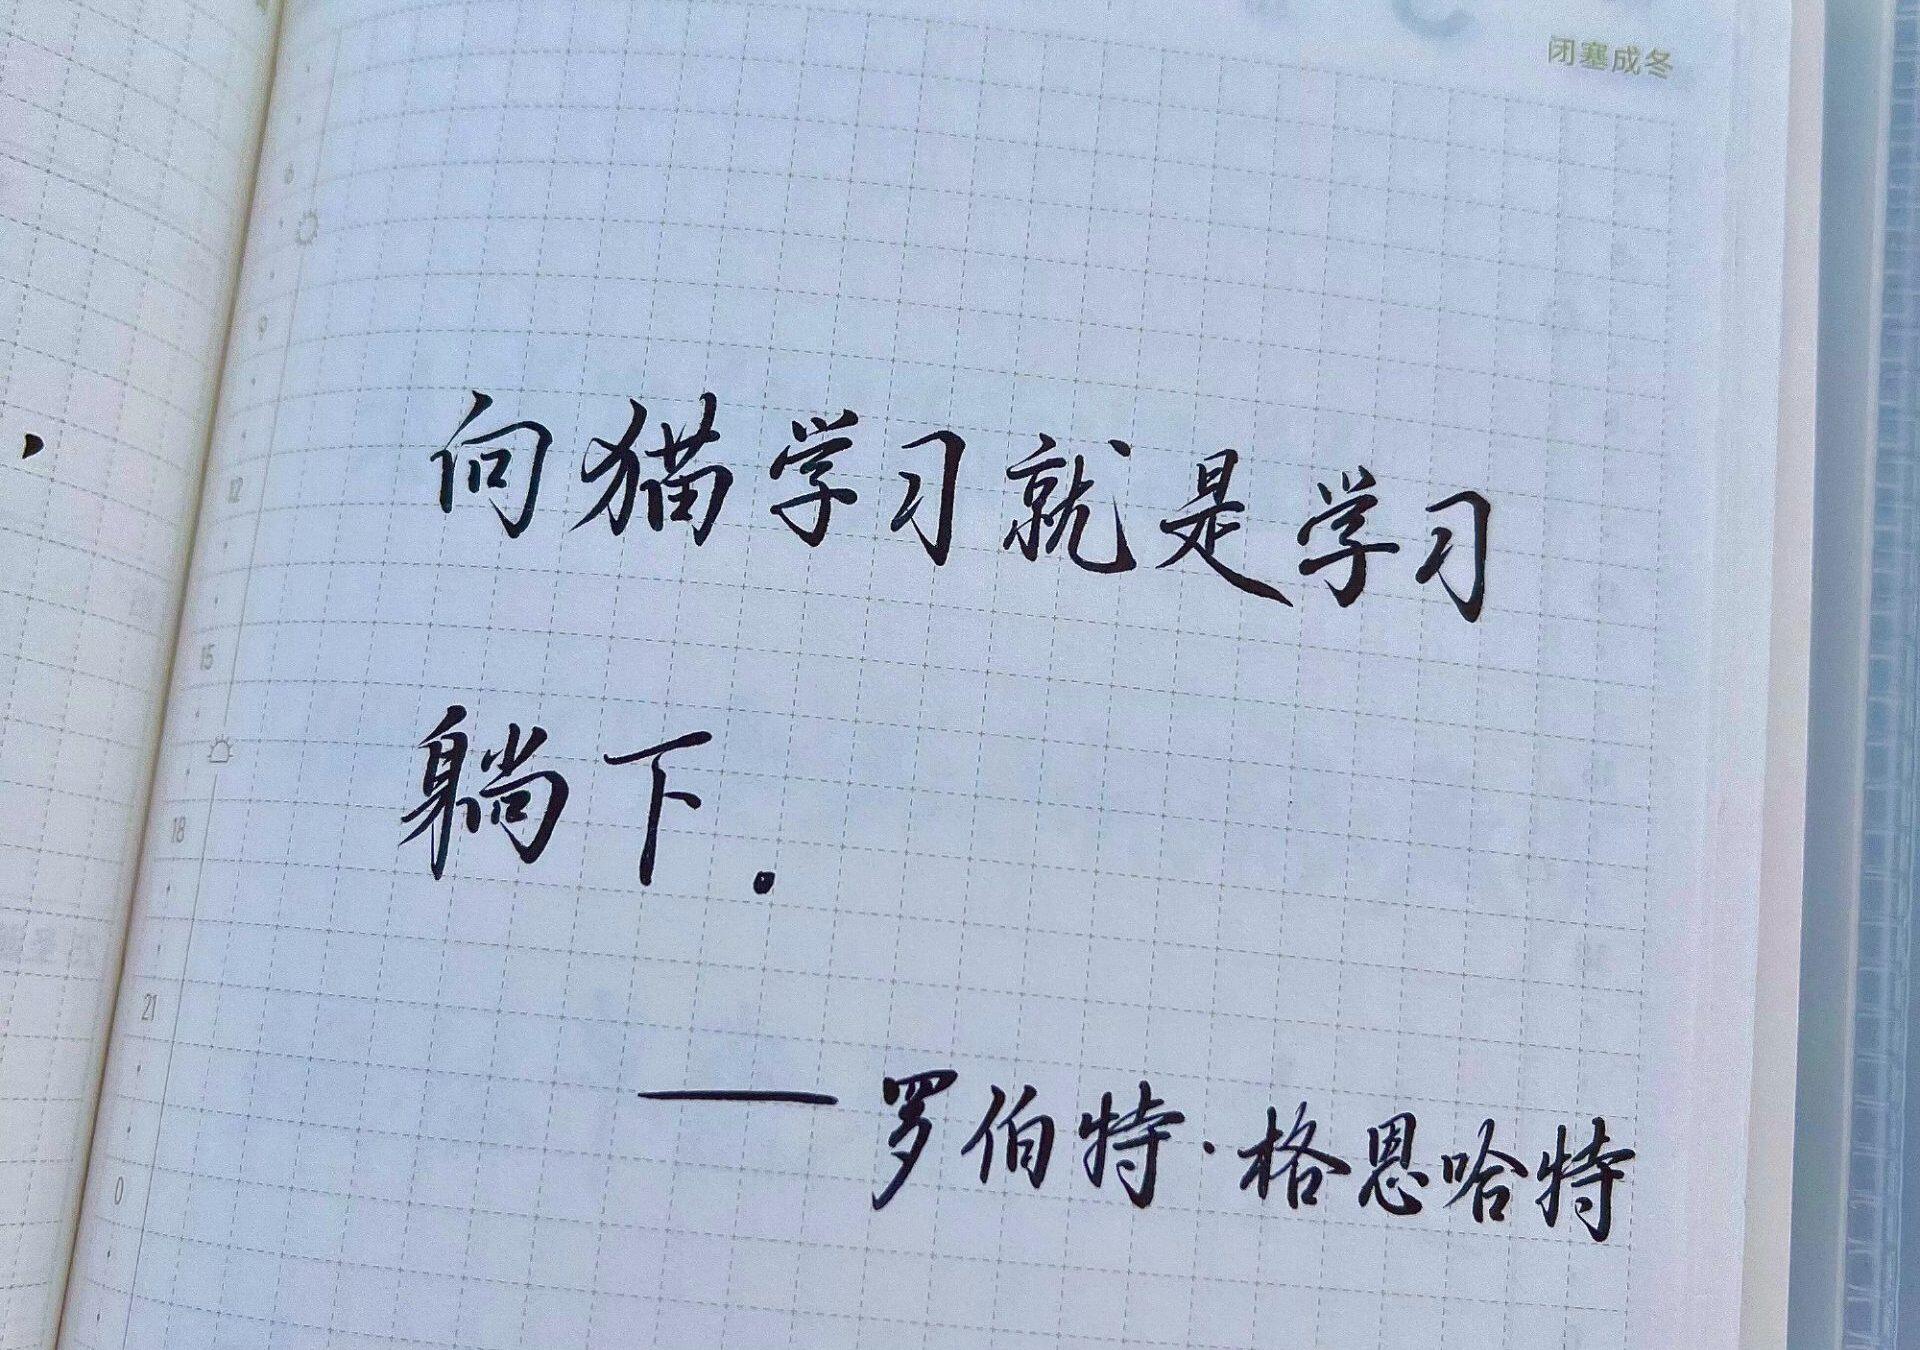 闭塞成冬
6
9
12
15
18
21
0
向猫学习就是学习
躺下.
——罗伯特·格恩哈特